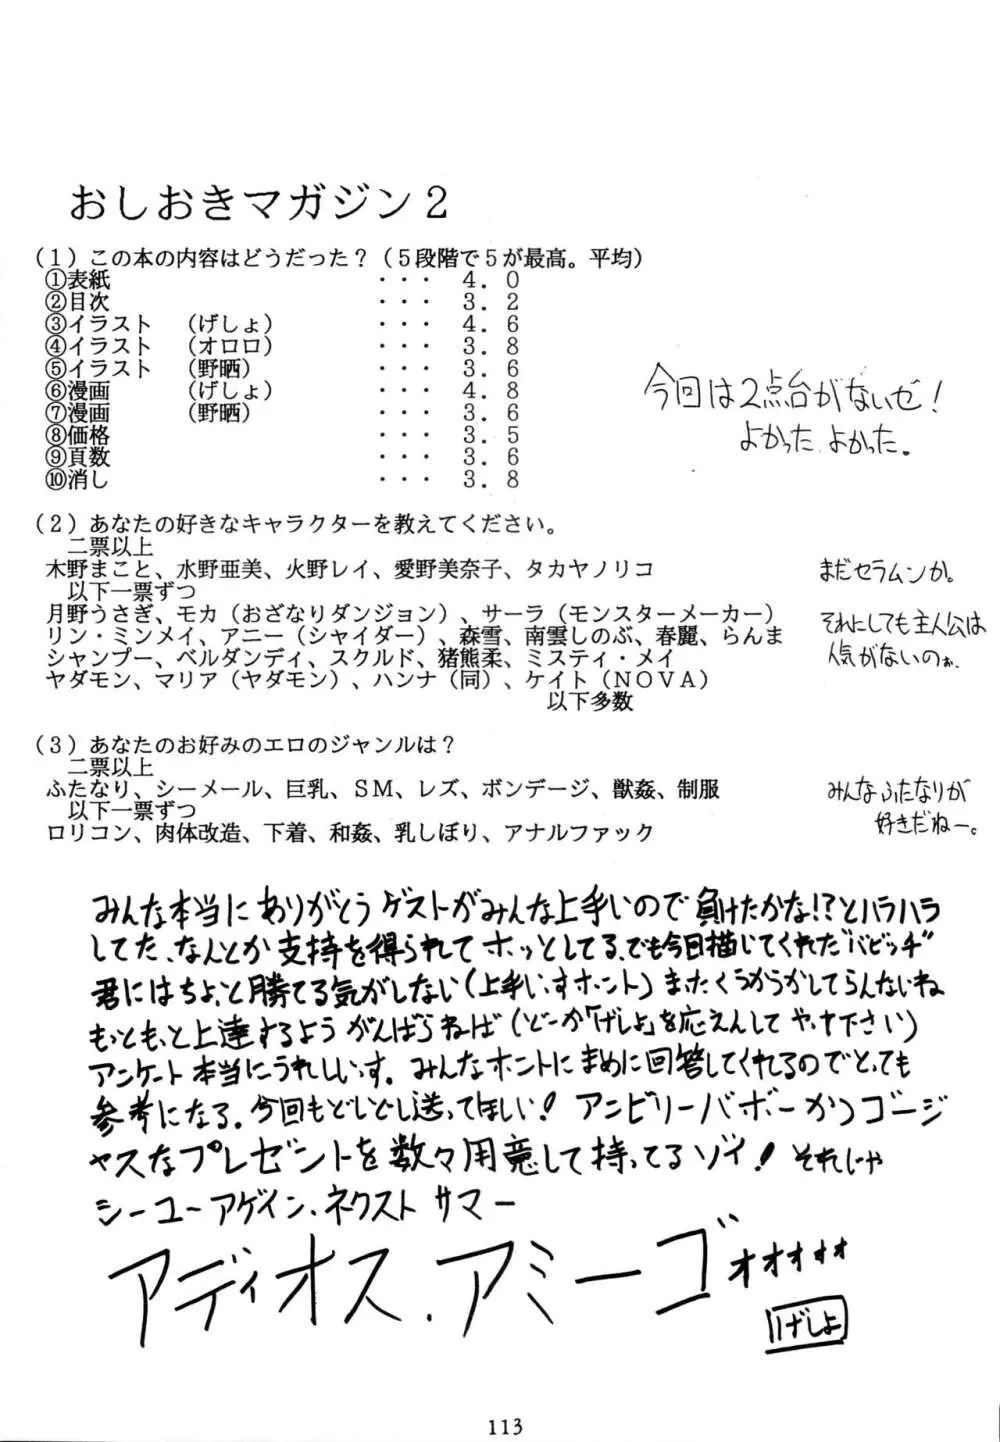 おしおきマガジン２
（１）この本の内容はどうだった？（５段階で５が最高。平均）
①表紙 ・・・ ４．０
②目次 ・・・ ３．２
③イラスト （げしょ） ・・・ ４．６
④イラスト （オロロ） ・・・ ３．８
⑤イラスト （野晒） ・・・ ３．６
⑥漫画 （げしょ） ・・・ ４．８
⑦漫画 （野晒） ・・・ ３．６
⑧価格 ・・・ ３．５
⑨頁数 ・・・ ３．６
⑩消し ・・・ ３．８
今回は2点台がないぜ！
よかった、よかった。
（２）あなたの好きなキャラクターを教えてください。
二票以上
木野まこと、水野亜美、火野レイ、愛野美奈子、タカヤノリコ
以下一票ずつ
月野うさぎ、モカ（おざなりダンジョン）、サーラ（モンスターメーカー）
リン・ミンメイ、アニー（シャイダー）、森雪、南雲しのぶ、春麗、らんま
シャンプー、ベルダンディ、スクルド、猪熊柔、ミスティ・メイ
ヤダモン、マリア（ヤダモン）、ハンナ（同）、ケイト（ＮＯＶＡ）
以下多数
まだセラムンか。
それにしても主人公は
人気がないのぉ。
（３）あなたのお好みのエロのジャンルは？
二票以上
ふたなり、シーメール、巨乳、ＳＭ、レズ、ボンデージ、獣姦、制服
以下一票ずつ
ロリコン、肉体改造、下着、和姦、乳しぼり、アナルファック
みんなふたなりが
好きだねー。
みんな本当にありがとうゲストがみんな上手いので負けたかな!?とハラハラ
してた、なんとか支持を得られてホッとしてる、でも今日描いてくれた“バビッチ”
君にはちょっと勝てる気がしない（上手いっすホント）またくうかうかしてらんないね
もっともっと上達するようがんばらねば（どーか「げしょ」を応えんしてやって下さい）
アンケート本当にうれしいっす。みんなホントにまめに回答してくれるのでとっても
参考になる。今回もどしどし送ってほしい！アンビリーバボーかつゴージ
ャスなプレゼントを数々用意して持ってるゾイ！それじゃ
シーユーアゲイン、ネクストサマー
アディオス．アミーゴォォォォォ
げしょ
113